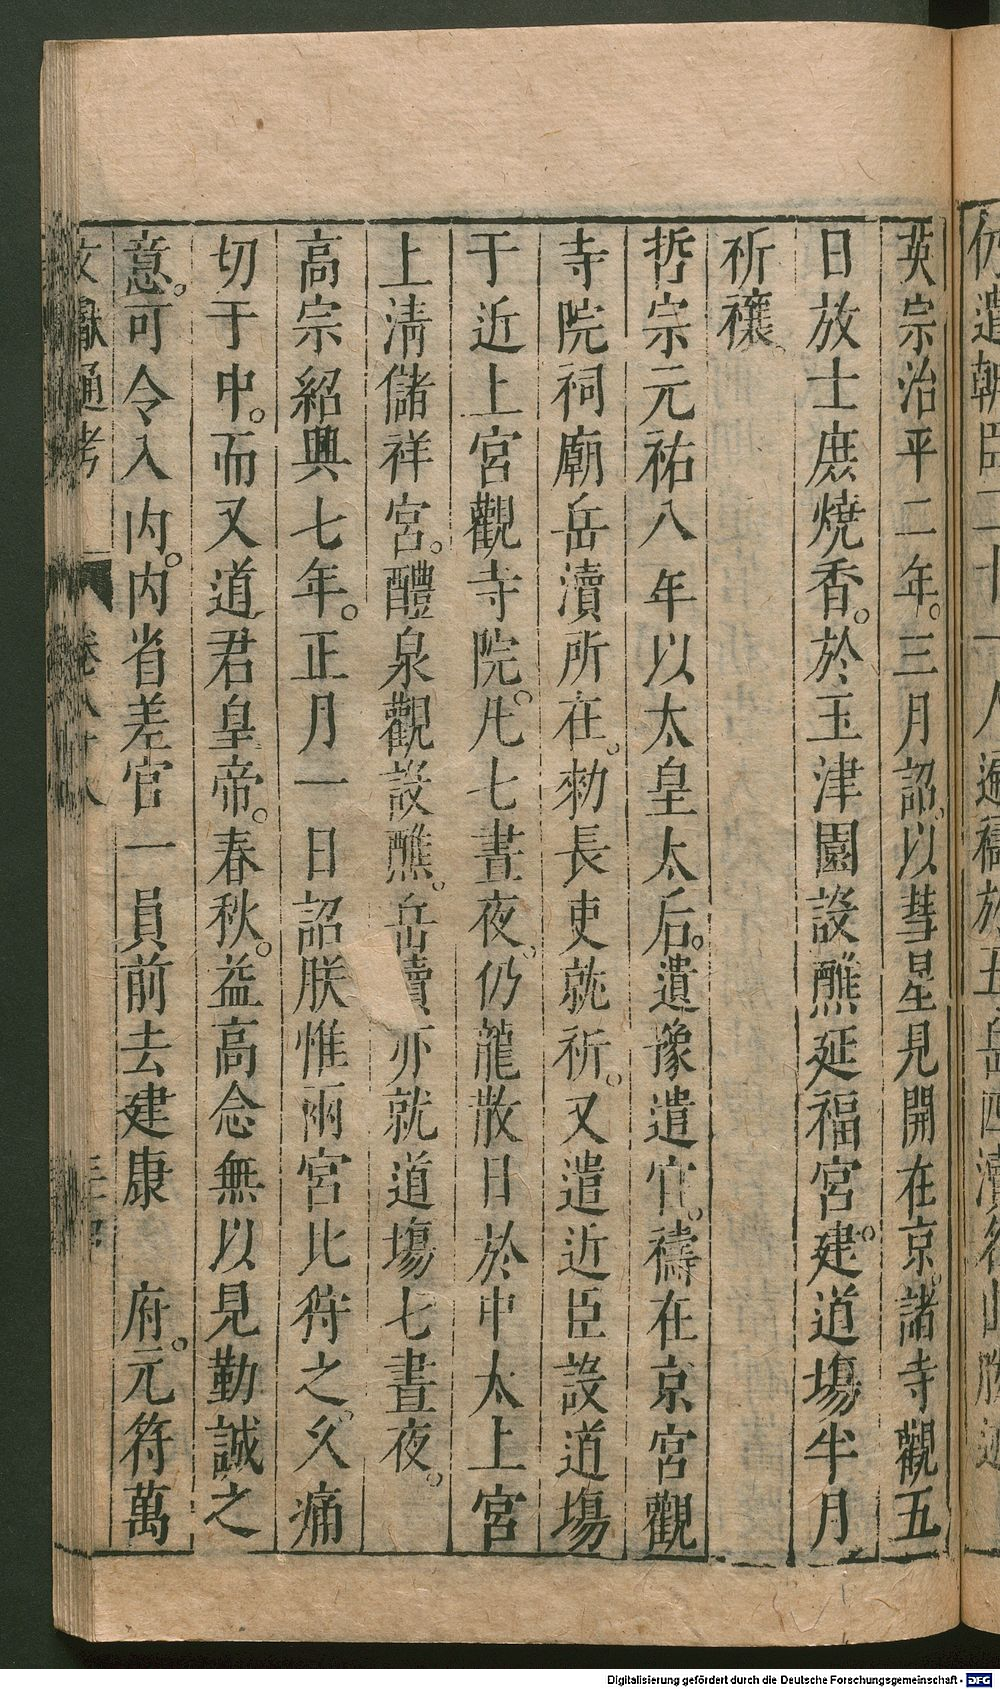 英宗治平二年。三月詔。以彗星見開在京。諸寺觀五
日放士庶燒香。於玉津園設醮延福宮。建道場半月
祈禳。
哲宗元祐八年以太皇太后。遺豫遣官。禱在京宮觀
寺院祠廟岳瀆所在。勑長吏就祈。又遣近臣設道場
于近上宮觀寺院。凡七晝夜。仍龍散日於中太上宮
上清儲祥宮。醴泉觀設醮。岳瀆亦就道場七晝夜。
高宗紹興七年。正月一日詔朕惟兩宮比狩之。久痛
切于中。而又道君皇帝。春秋。益高念無以見勤誠之
意。可令入內。內省差官一員前去建康 府。元符萬
文獻通考 卷八十八
Digitalisierung gefördert durch die Deutsche Forschungsgemeinschaft - DFG